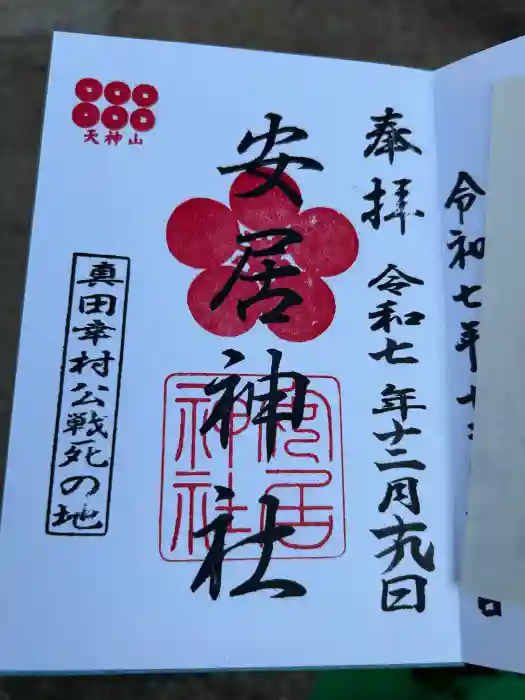 令和七年十
奉拝 令和七年十二月十九日
安居神社
安居神社
天神山
真田幸村公戦死の地